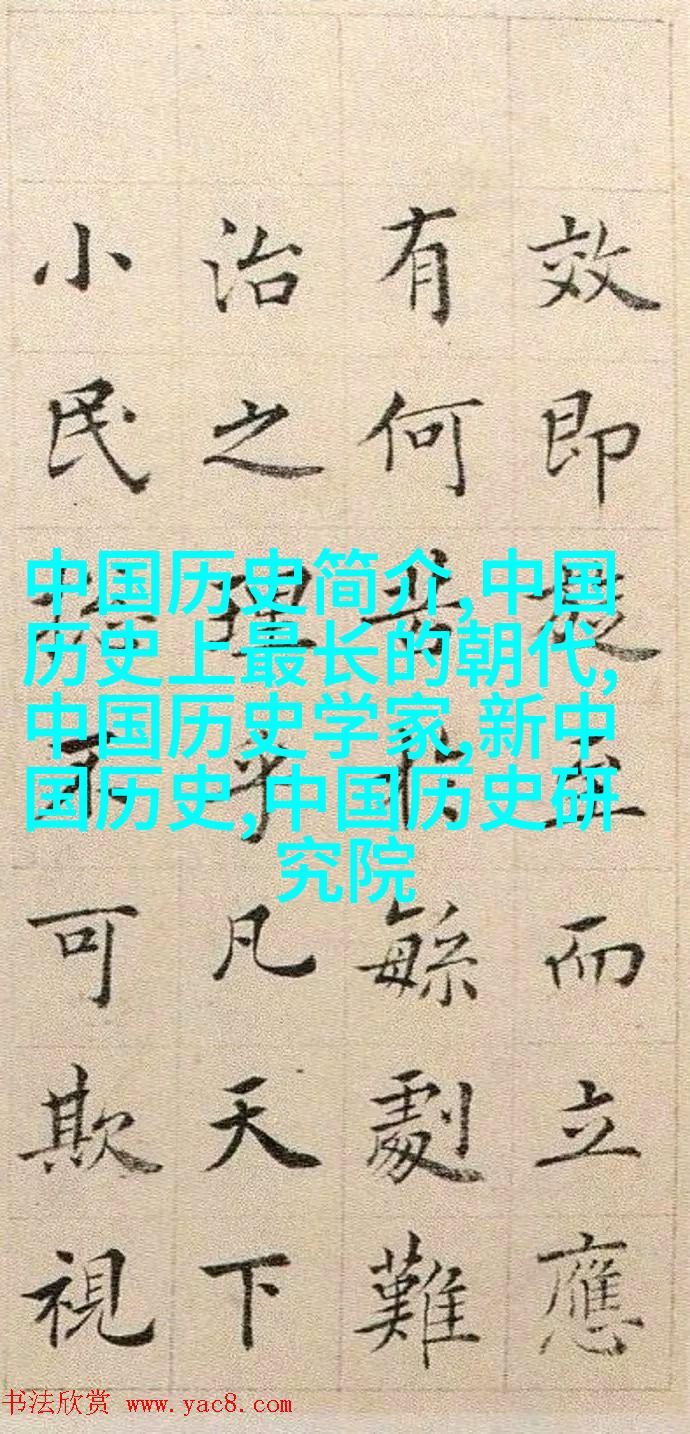 效即至而立應
有何緐劇難
治之理乎凡天下
小民不可欺視
中国历史简介,中国
历史上最长的朝代,
中国历史学家,新中
国历史,中国历史研
究院
书法欣赏 www.yac8.com